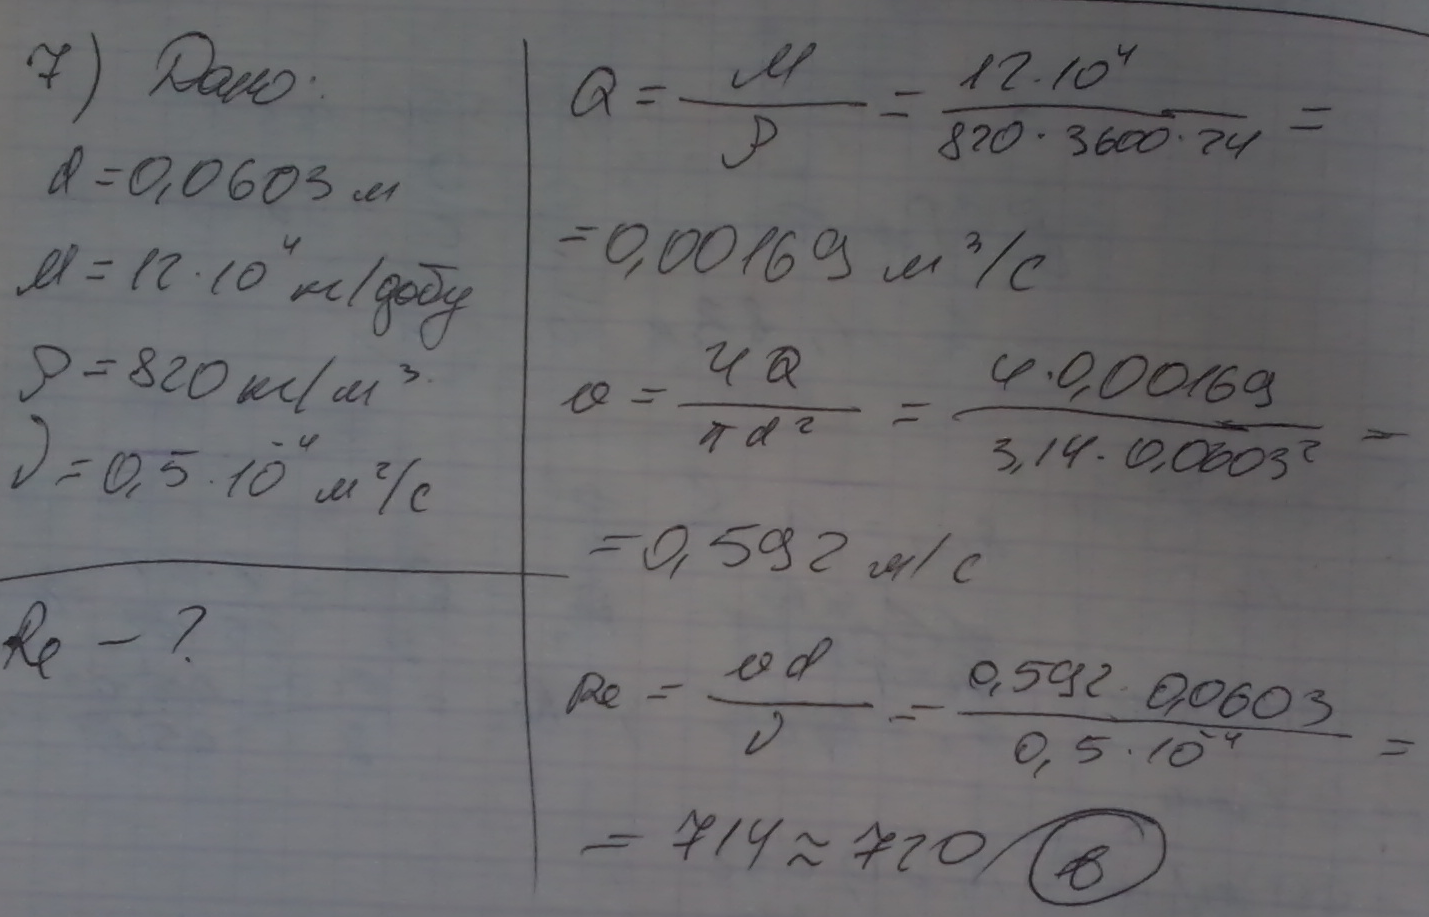 7) Дано:
d = 0,0603 м
M = 12·10⁴ кг/добу
ρ = 820 кг/м³
ν = 0,5·10⁻⁴ м²/с
Re – ?
Q = M/ρ = 12·10⁴/(820·3600·24) =
= 0,00169 м³/с
υ = 4Q/(πd²) = 4·0,00169/(3,14·0,0603²) =
= 0,592 м/с
Re = υd/ν = 0,592·0,0603/(0,5·10⁻⁴) =
= 714 ≈ 720 в